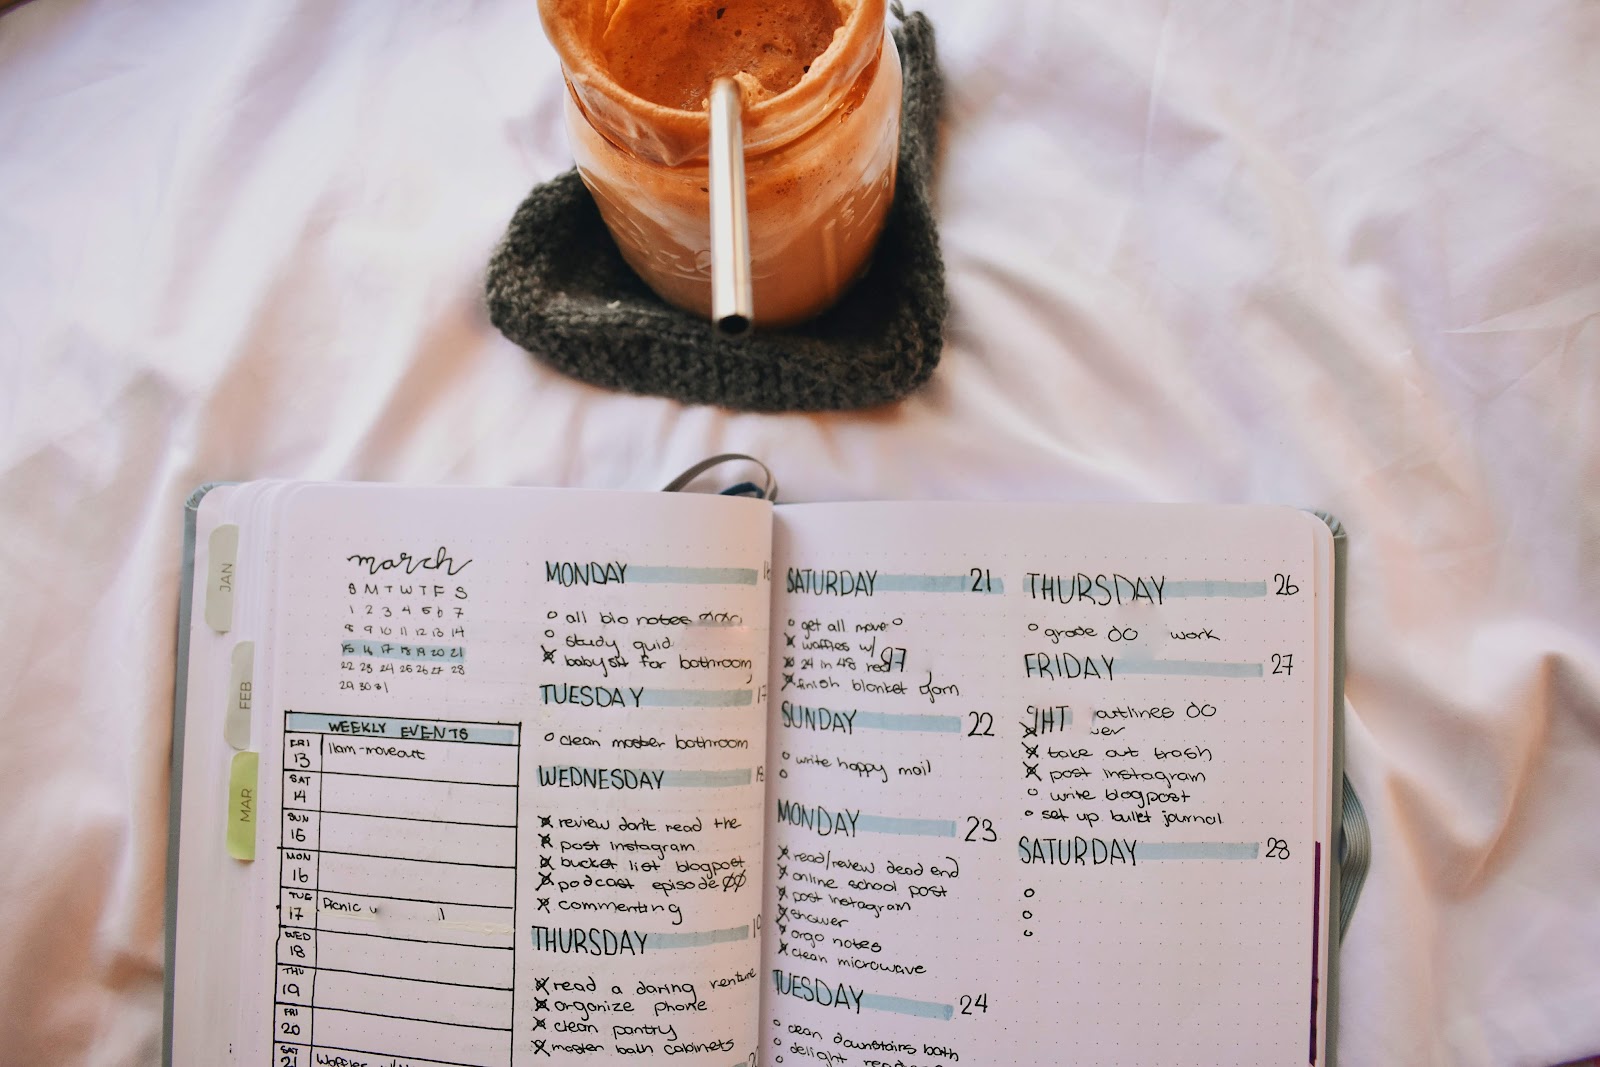 JAN
FEB
MAR
march
S M T W T F S
1 2 3 4 5 6 7
8 9 10 11 12 13 14
15 16 17 18 19 20 21
22 23 24 25 26 27 28
29 30 31
WEEKLY EVENTS
FRI 13 11am-moveout
SAT 14
SUN 15
MON 16
TUE 17 Picnic
WED 18
THU 19
FRI 20
SAT 21 Waffles
MONDAY 16
all bio notes
study
babysit for bathroom
TUESDAY 17
clean master bathroom
WEDNESDAY 18
review don't read the
post instagram
bucket list blogpost
podcast episode
commenting
THURSDAY 19
read a daring venture
organize phone
clean pantry
master bath cabinets
SATURDAY 21
get all move
waffles w/
24 in 48
finish blanket
SUNDAY 22
write happy mail
MONDAY 23
read/review dead end
online school post
post instagram
shower
orgo notes
clean microwave
TUESDAY 24
clean downstairs bath
delight
THURSDAY 26
grade work
FRIDAY 27
outlines
take out trash
post instagram
write blogpost
set up bullet journal
SATURDAY 28